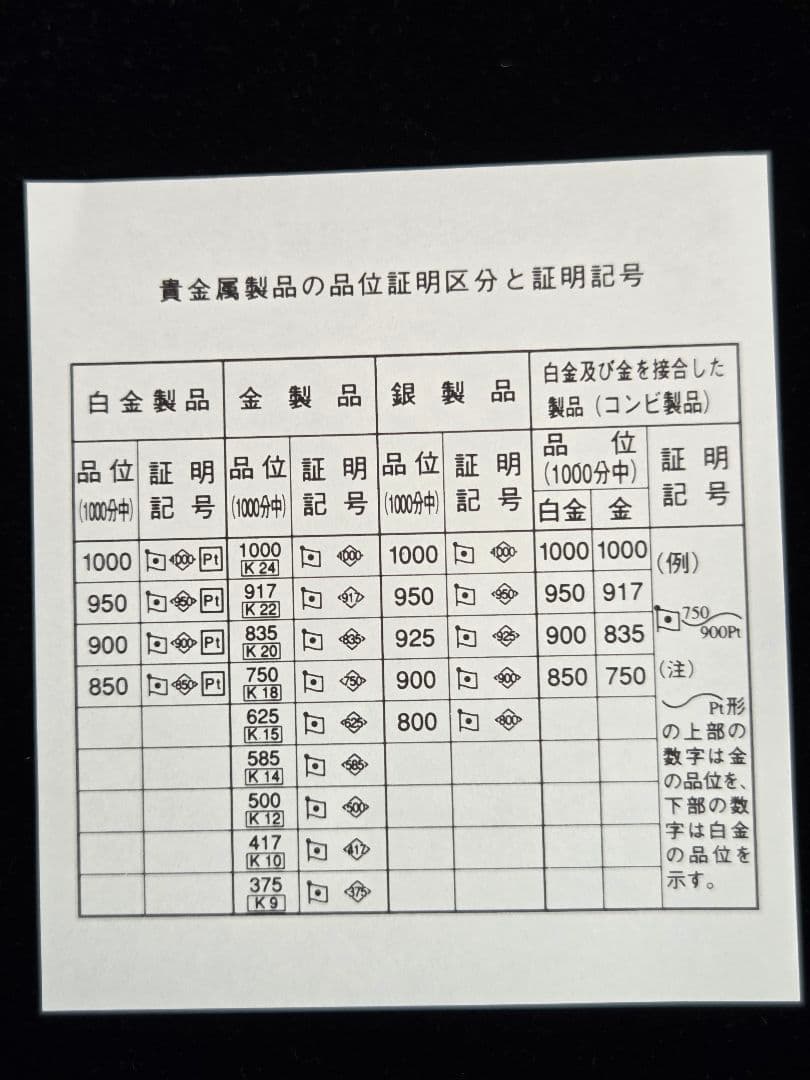 貴金属製品の品位証明区分と証明記号
白金製品 金製品 銀製品 白金及び金を接合した
製品（コンビ製品）
品位 証明 品位 証明 品位 証明 品位 証明
(1000分中) 記号 (1000分中) 記号 (1000分中) 記号 (1000分中) 記号
白金 金
1000 1000 Pt 1000 1000 1000 1000 1000 1000 (例)
K 24
950 950 Pt 917 917 950 950 950 917 750
K 22
900 900 Pt 835 835 925 925 900 835 900Pt
K 20
850 850 Pt 750 750 900 900 850 750 (注)
K 18
625 625 800 800 Pt形
K 15
の上部の
585 585 数字は金
K 14
の品位を、
500 500 下部の数
K 12
字は白金
417 417 の品位を
K 10
375 375 示す。
K 9